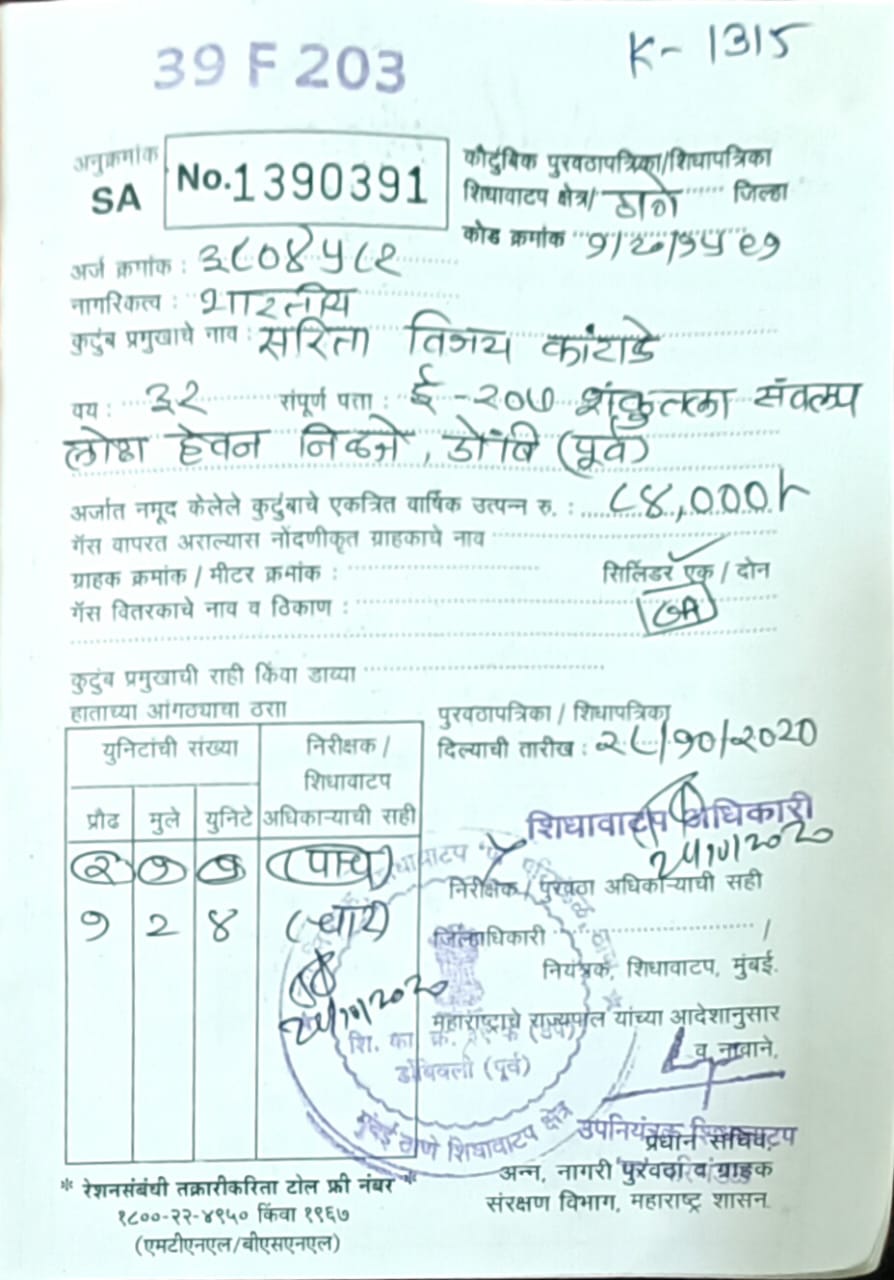 39 F 203
K- 1315
अनुक्रमांक
SA No. 1390391
कौटुंबिक पुरवठापत्रिका/शिधापत्रिका
शिधावाटप क्षेत्र/ ठाणे जिल्हा
कोड क्रमांक
अर्ज क्रमांक : ३८०४५८१
नागरिकत्व : भारतीय
कुटुंब प्रमुखाचे नाव : सरिता विजय कांटाडे
वय : ३२ संपूर्ण पत्ता : ई -२०७ शंकुतला संकल्प
लोढा हेवन निळजे, डोंबि (पूर्व)
अर्जात नमूद केलेले कुटुंबाचे एकत्रित वार्षिक उत्पन्न रु. : ८४,०००/-
गॅस वापरत असल्यास नोंदणीकृत ग्राहकाचे नाव
ग्राहक क्रमांक / मीटर क्रमांक : सिलिंडर एक / दोन
गॅस वितरकाचे नाव व ठिकाण :
कुटुंब प्रमुखाची सही किंवा डाव्या
हाताच्या आंगठ्याचा ठसा
पुरवठापत्रिका / शिधापत्रिका
दिल्याची तारीख : २८/१०/२०२०
युनिटांची संख्या
निरीक्षक /
शिधावाटप
अधिकाऱ्याची सही
प्रौढ मुले युनिटे
(पाच)
१ 2 ४ (चार)
शिधावाटप अधिकारी
निरीक्षक / पुरवठा अधिकाऱ्याची सही
जिल्हाधिकारी /
नियंत्रक, शिधावाटप, मुंबई.
महाराष्ट्राचे राज्यपाल यांच्या आदेशानुसार
व नावाने,
डोंबिवली (पूर्व)
मुंबई ठाणे शिधावाटप क्षेत्र
उपनियंत्रक शिधावाटप
प्रधान सचिव,
अन्न, नागरी पुरवठा व ग्राहक
संरक्षण विभाग, महाराष्ट्र शासन.
* रेशनसंबंधी तक्रारीकरिता टोल फ्री नंबर *
१८००-२२-४९५० किंवा १९६७
(एमटीएनएल/बीएसएनएल)